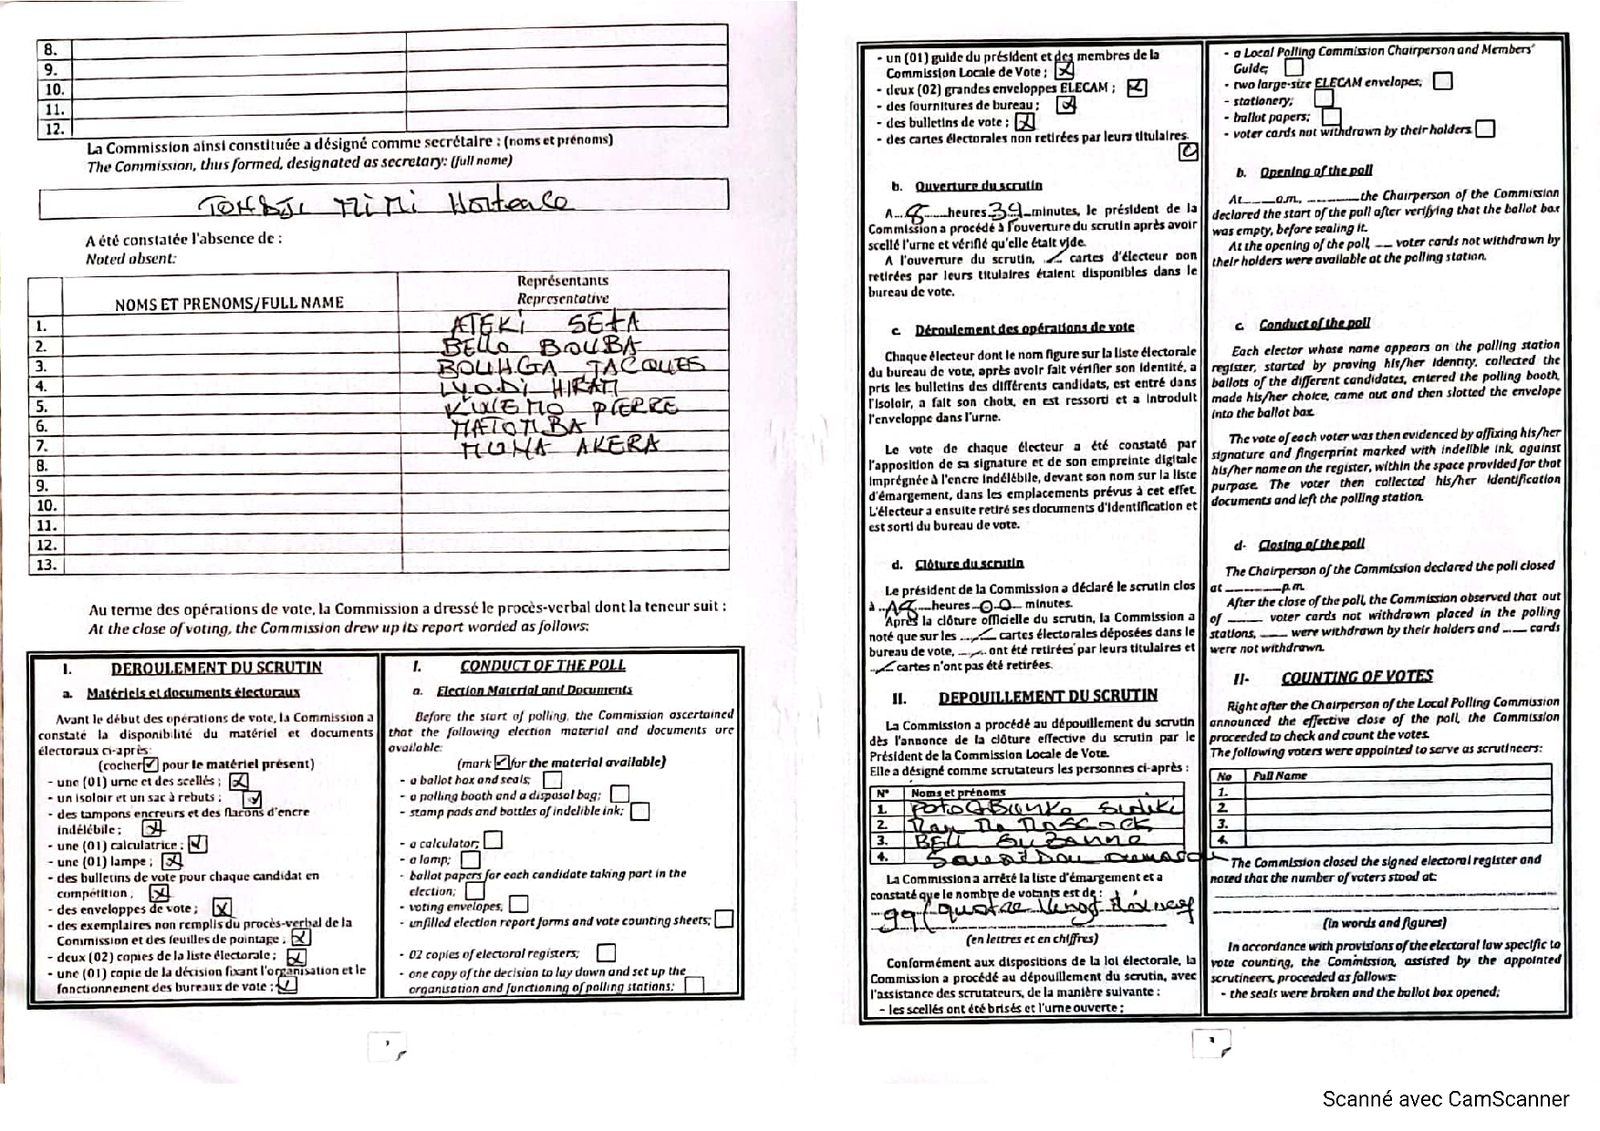 8.
9.
10.
11.
12.
La Commission ainsi constituée a désigné comme secrétaire : (noms et prénoms)
The Commission, thus formed, designated as secretary: (full name)
MIMI Hortense
A été constatée l'absence de :
Noted absent:
NOMS ET PRENOMS/FULL NAME
Représentants
Representative
1. ATEKI SETA
2. BELLO BOUBA
3. BOUHGA JACQUES
4. LYODI HIRAM
5. KWEMO PIERRE
6. MATOMBA
7. MUNA AKERA
8.
9.
10.
11.
12.
13.
Au terme des opérations de vote, la Commission a dressé le procès-verbal dont la teneur suit :
At the close of voting, the Commission drew up its report worded as follows:
I. DEROULEMENT DU SCRUTIN
a. Matériels et documents électoraux
Avant le début des opérations de vote, la Commission a
constaté la disponibilité du matériel et documents
électoraux ci-après:
(cocher ✓ pour le matériel présent)
- une (01) urne et des scellés ;
- un isoloir et un sac à rebuts ;
- des tampons encreurs et des flacons d'encre
indélébile ;
- une (01) calculatrice ;
- une (01) lampe ;
- des bulletins de vote pour chaque candidat en
compétition ;
- des enveloppes de vote ;
- des exemplaires non remplis du procès-verbal de la
Commission et des feuilles de pointage ;
- deux (02) copies de la liste électorale ;
- une (01) copie de la décision fixant l'organisation et le
fonctionnement des bureaux de vote ;
I. CONDUCT OF THE POLL
a. Election Material and Documents
Before the start of polling, the Commission ascertained
that the following election material and documents are
available:
(mark ✓ for the material available)
- a ballot box and seals;
- a polling booth and a disposal bag;
- stamp pads and bottles of indelible ink;
- a calculator;
- a lamp;
- ballot papers for each candidate taking part in the
election;
- voting envelopes;
- unfilled election report forms and vote counting sheets;
- 02 copies of electoral registers;
- one copy of the decision to lay down and set up the
organisation and functioning of polling stations;
- un (01) guide du président et des membres de la
Commission Locale de Vote ;
- deux (02) grandes enveloppes ELECAM ;
- des fournitures de bureau ;
- des bulletins de vote ;
- des cartes électorales non retirées par leurs titulaires
b. Ouverture du scrutin
A 8 heures 34 minutes, le président de la
Commission a procédé à l'ouverture du scrutin après avoir
scellé l'urne et vérifié qu'elle était vide.
A l'ouverture du scrutin, cartes d'électeur non
retirées par leurs titulaires étaient disponibles dans le
bureau de vote.
c. Déroulement des opérations de vote
Chaque électeur dont le nom figure sur la liste électorale
du bureau de vote, après avoir fait vérifier son identité, a
pris les bulletins des différents candidats, est entré dans
l'isoloir, a fait son choix, en est ressorti et a introduit
l'enveloppe dans l'urne.
Le vote de chaque électeur a été constaté par
l'apposition de sa signature et de son empreinte digitale
imprégnée à l'encre indélébile, devant son nom sur la liste
d'émargement, dans les emplacements prévus à cet effet.
L'électeur a ensuite retiré ses documents d'identification et
est sorti du bureau de vote.
d. Clôture du scrutin
Le président de la Commission a déclaré le scrutin clos
à 18 heures 00 minutes.
Après la clôture officielle du scrutin, la Commission a
noté que sur les cartes électorales déposées dans le
bureau de vote, ont été retirées par leurs titulaires et
cartes n'ont pas été retirées.
II. DEPOUILLEMENT DU SCRUTIN
La Commission a procédé au dépouillement du scrutin
dès l'annonce de la clôture effective du scrutin par le
Président de la Commission Locale de Vote.
Elle a désigné comme scrutateurs les personnes ci-après :
N° Noms et prénoms
1.
2.
3. BELL Suzanne
4.
La Commission a arrêté la liste d'émargement et a
constaté que le nombre de votants est de :
99 / quatre vingt dix neuf
(en lettres et en chiffres)
Conformément aux dispositions de la loi électorale, la
Commission a procédé au dépouillement du scrutin, avec
l'assistance des scrutateurs, de la manière suivante :
- les scellés ont été brisés et l'urne ouverte ;
- a Local Polling Commission Chairperson and Members'
Guide;
- two large-size ELECAM envelopes;
- stationery;
- ballot papers;
- voter cards not withdrawn by their holders
b. Opening of the poll
At ____ a.m., ____ the Chairperson of the Commission
declared the start of the poll after verifying that the ballot box
was empty, before sealing it.
At the opening of the poll, ___ voter cards not withdrawn by
their holders were available at the polling station.
c. Conduct of the poll
Each elector whose name appears on the polling station
register, started by proving his/her identity, collected the
ballots of the different candidates, entered the polling booth,
made his/her choice, came out and then slotted the envelope
into the ballot box.
The vote of each voter was then evidenced by affixing his/her
signature and fingerprint marked with indelible ink, against
his/her name on the register, within the space provided for that
purpose. The voter then collected his/her identification
documents and left the polling station.
d- Closing of the poll
The Chairperson of the Commission declared the poll closed
at ____ p.m.
After the close of the poll, the Commission observed that out
of ____ voter cards not withdrawn placed in the polling
stations, ____ were withdrawn by their holders and ____ cards
were not withdrawn.
II- COUNTING OF VOTES
Right after the Chairperson of the Local Polling Commission
announced the effective close of the poll, the Commission
proceeded to check and count the votes.
The following voters were appointed to serve as scrutineers:
No Full Name
1.
2.
3.
4.
The Commission closed the signed electoral register and
noted that the number of voters stood at:
(in words and figures)
In accordance with provisions of the electoral law specific to
vote counting, the Commission, assisted by the appointed
scrutineers, proceeded as follows:
- the seals were broken and the ballot box opened;
Scanné avec CamScanner